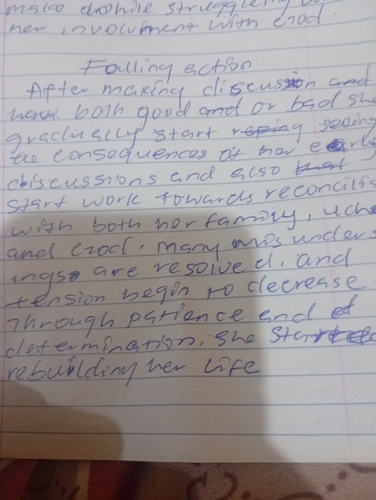 her involvement with Crod.
Falling action
After making discussion and
both good and or bad she
gradually start seeing
the consequences of her early
discussions and also that
start work towards reconcilia
with both her family, Uche
and Crod. many mis unders
ings are resolved, and
tension begin to decrease
Through patience and
determination, she started
rebuilding her life